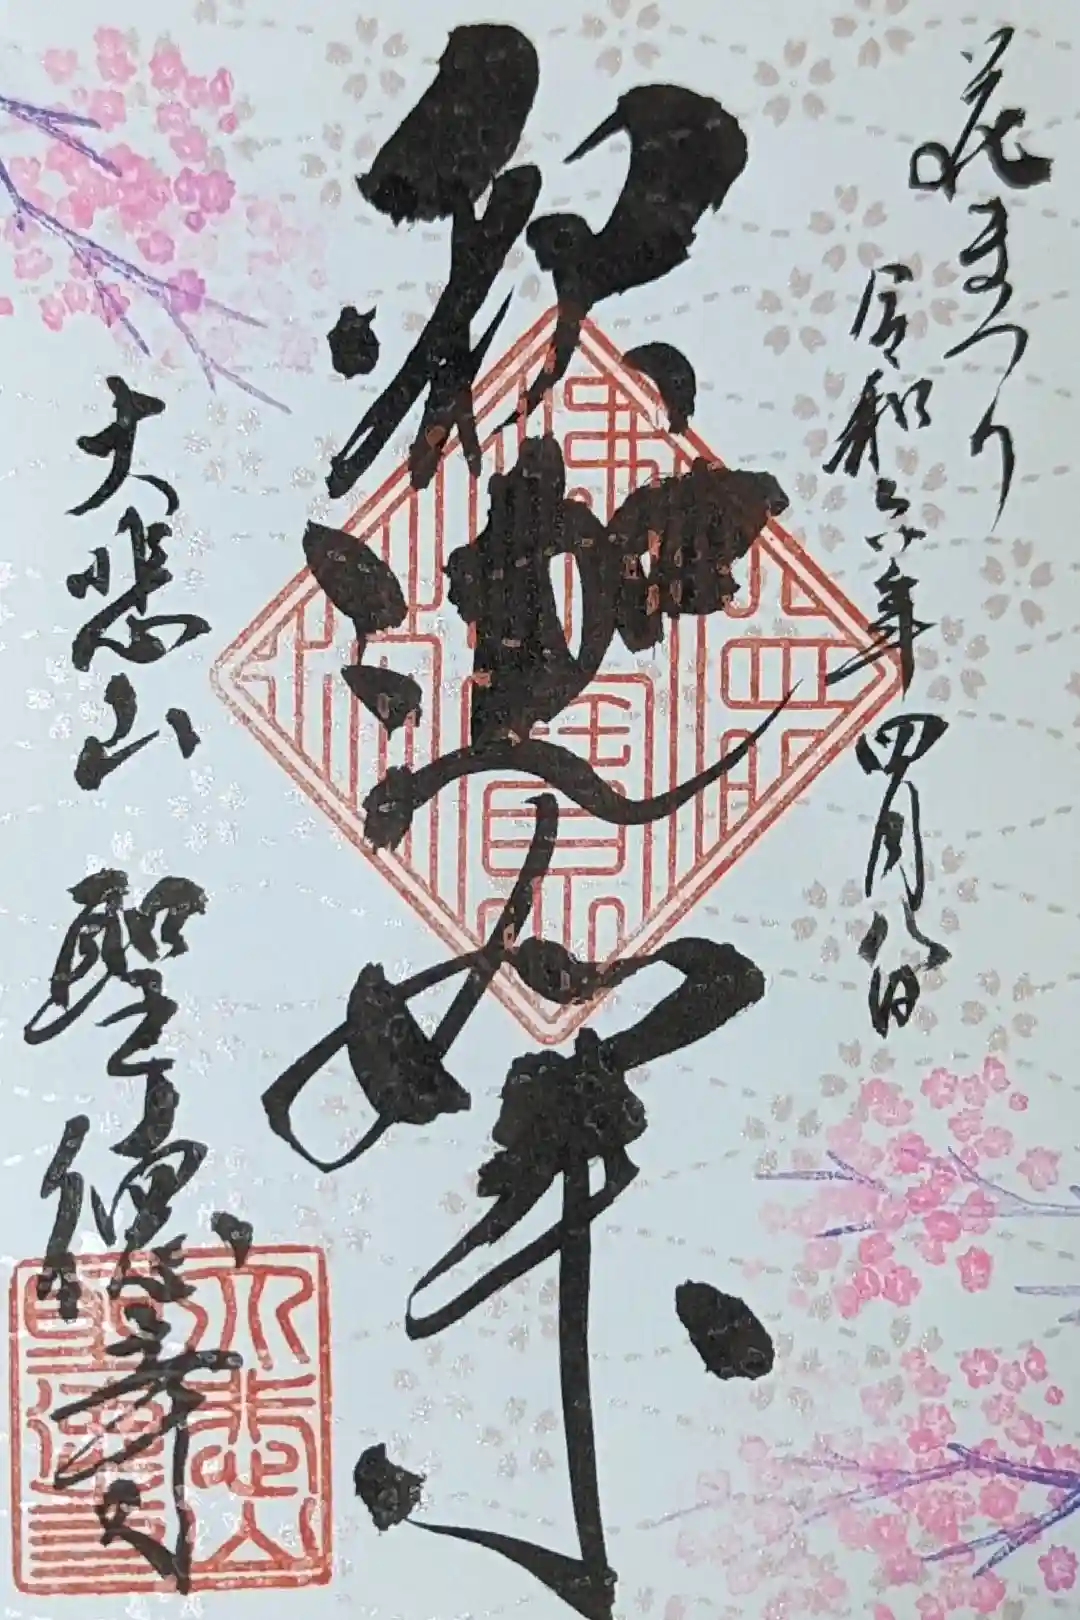 花まつり
令和六年四月八日
釈迦如来
大悲山 聖
大悲山